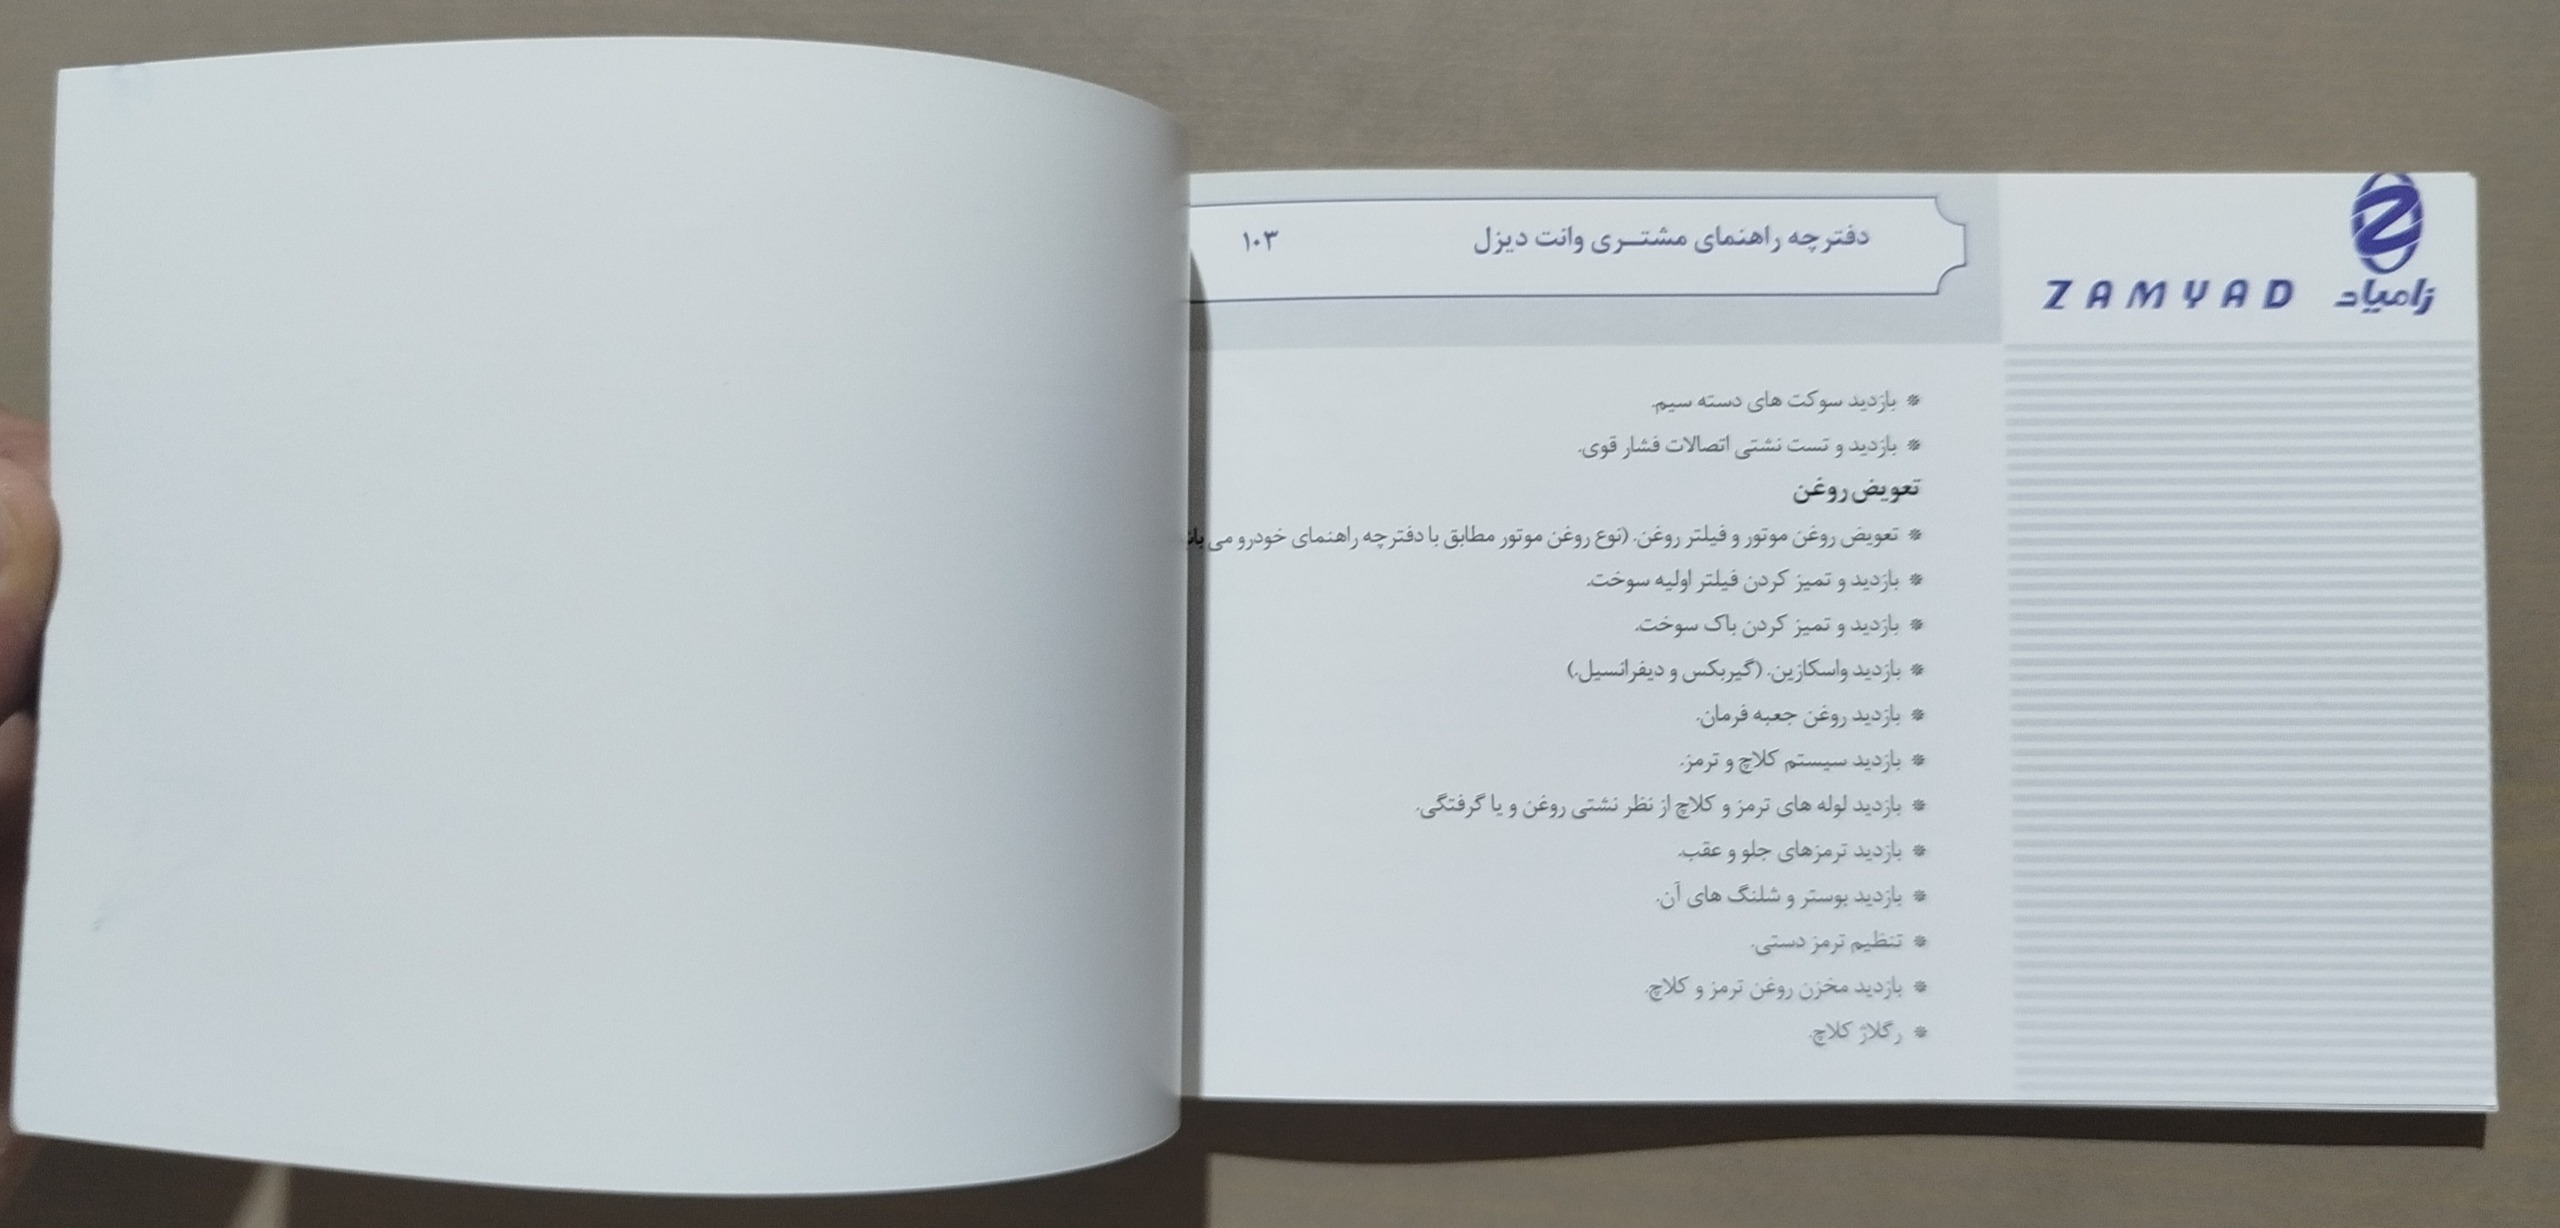 زامیاد
ZAMYAD
دفترچه راهنمای مشتــری وانت دیزل ۱۰۳
* بازدید سوکت های دسته سیم.
* بازدید و تست نشتی اتصالات فشار قوی.
تعویض روغن
* تعویض روغن موتور و فیلتر روغن. (نوع روغن موتور مطابق با دفترچه راهنمای خودرو می
* بازدید و تمیز کردن فیلتر اولیه سوخت.
* بازدید و تمیز کردن باک سوخت.
* بازدید واسکازین. (گیربکس و دیفرانسیل.)
* بازدید روغن جعبه فرمان.
* بازدید سیستم کلاچ و ترمز.
* بازدید لوله های ترمز و کلاچ از نظر نشتی روغن و یا گرفتگی.
* بازدید ترمزهای جلو و عقب.
* بازدید بوستر و شلنگ های آن.
* تنظیم ترمز دستی.
* بازدید مخزن روغن ترمز و کلاچ.
* رگلاژ کلاچ.